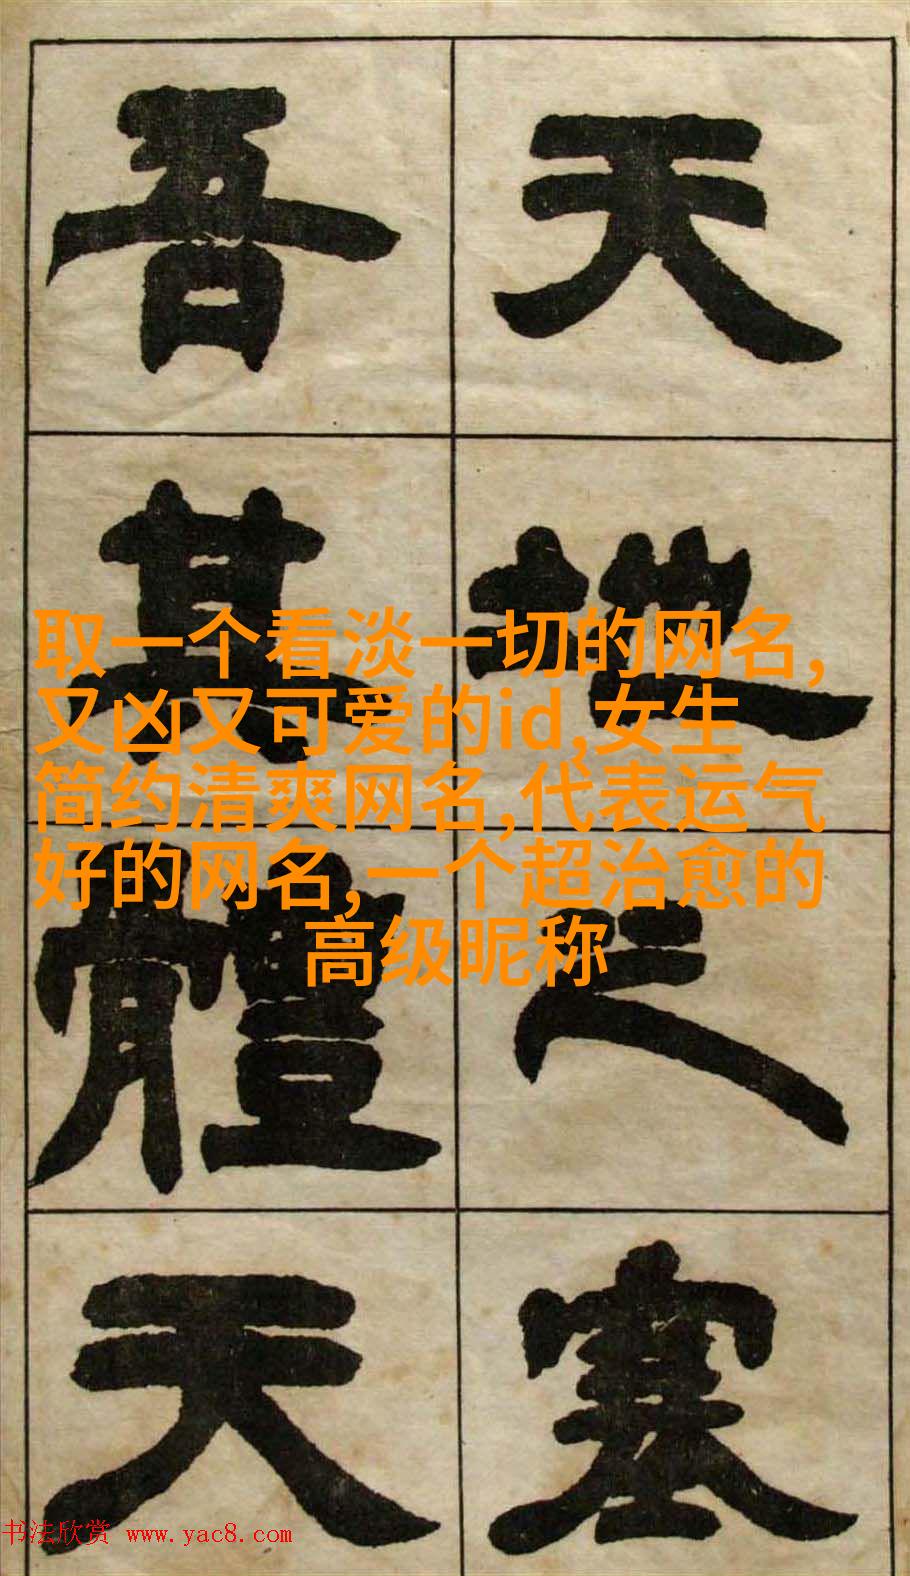 天地之塞
吾其體天
取一个看淡一切的网名,
又凶又可爱的id,女生
简约清爽网名,代表运气
好的网名,一个超治愈的
高级昵称
书法欣赏 www.yac8.com